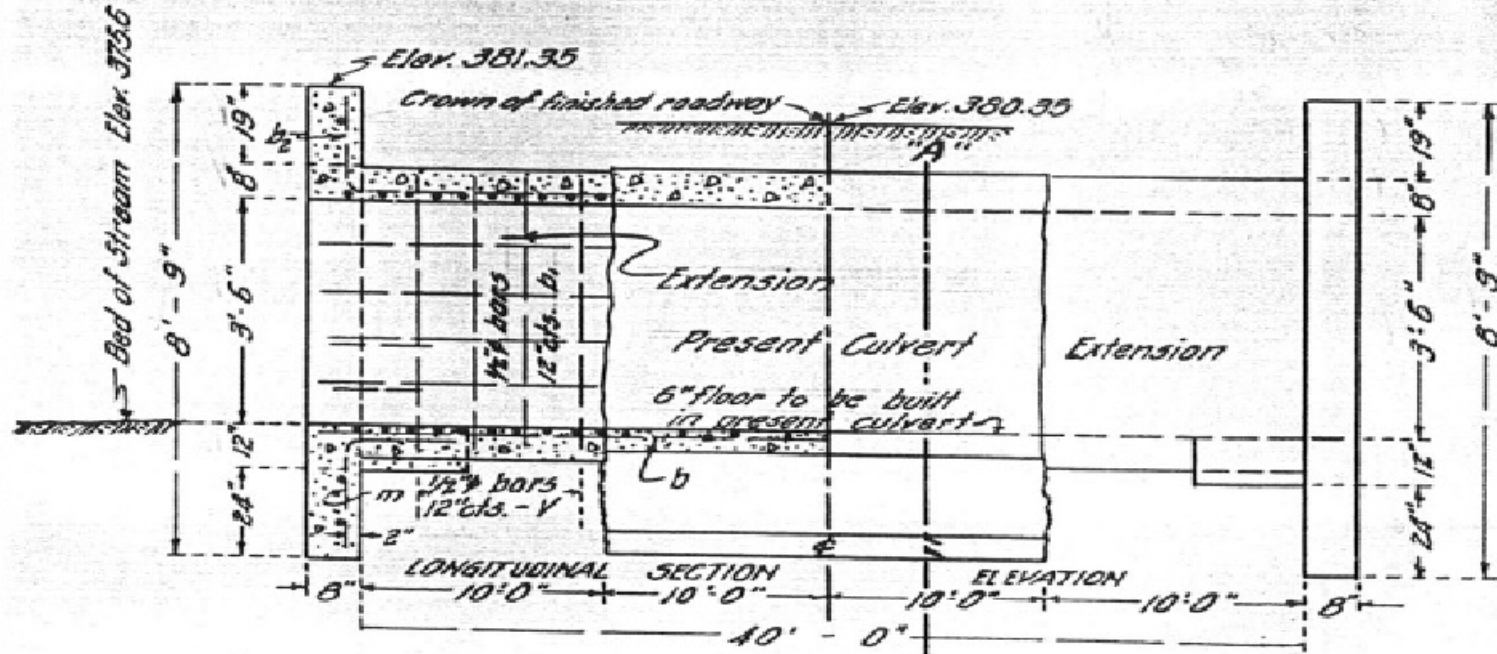 Bed of Stream Elev. 375.6
Elev. 381.35
Crown of finished roadway
Elev. 380.35
"A"
8'-9"
19"
8"
3'-6"
12"
24"
b2
Extension
½"ϕ bars
12"cts. b1
Present Culvert
Extension
6" floor to be built
in present culvert
b
m
½"ϕ bars
12"cts. - V
2"
19"
8"
3'-6"
12"
24"
8'-9"
LONGITUDINAL SECTION
ELEVATION
8"
10'-0"
10'-0"
10'-0"
10'-0"
8"
40' - 0"